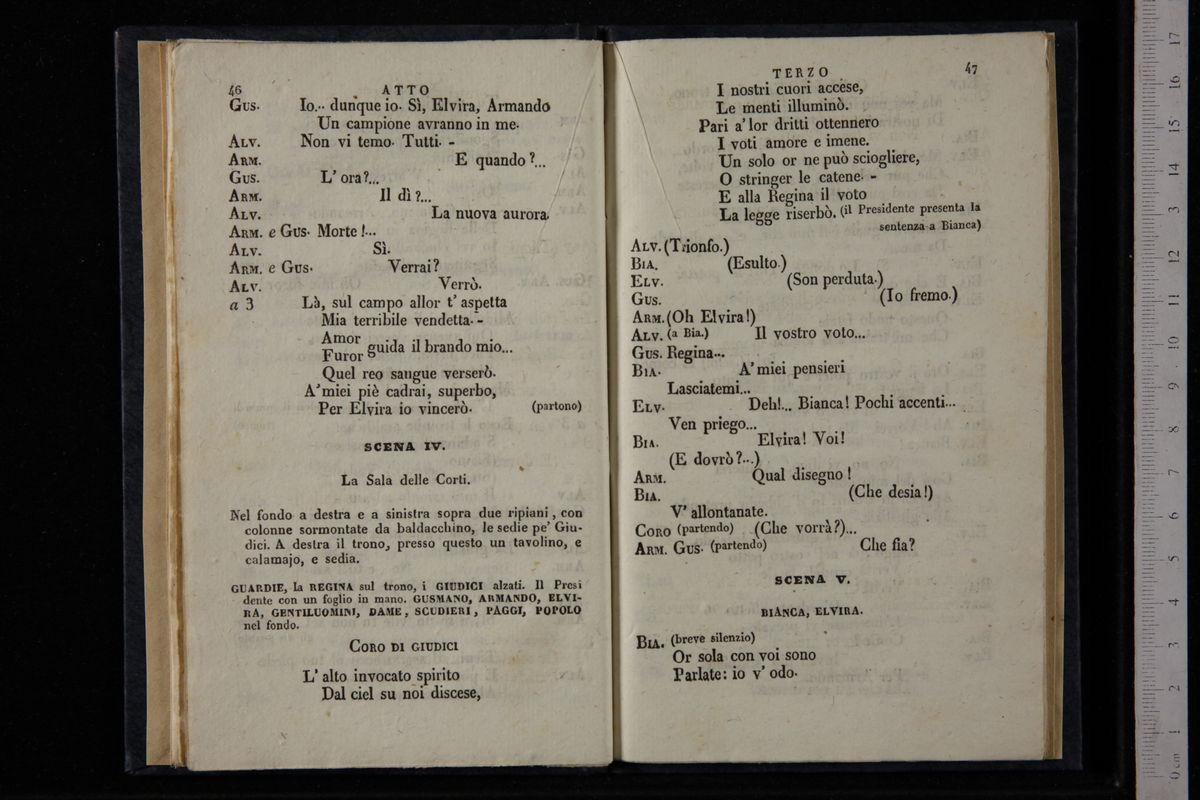 46 ATTO
GUS. Io... dunque io. Sì, Elvira, Armando
Un campione avranno in me.
ALV. Non vi temo. Tutti. -
ARM. E quando?...
GUS. L' ora?...
ARM. Il dì?...
ALV. La nuova aurora.
ARM. e GUS. Morte!...
ALV. Sì.
ARM. e GUS. Verrai?
ALV. Verrò.
a 3 Là, sul campo allor t' aspetta
Mia terribile vendetta. -
Amor
Furor guida il brando mio...
Quel reo sangue verserò.
A' miei piè cadrai, superbo,
Per Elvira io vincerò. (partono)
SCENA IV.
La Sala delle Corti.
Nel fondo a destra e a sinistra sopra due ripiani, con
colonne sormontate da baldacchino, le sedie pe' Giu-
dici. A destra il trono, presso questo un tavolino, e
calamajo, e sedia.
GUARDIE, la REGINA sul trono, i GIUDICI alzati. Il Presi
dente con un foglio in mano. GUSMANO, ARMANDO, ELVI-
RA, GENTILUOMINI, DAME, SCUDIERI, PAGGI, POPOLO
nel fondo.
CORO DI GIUDICI
L' alto invocato spirito
Dal ciel su noi discese,
TERZO 47
I nostri cuori accese,
Le menti illuminò.
Pari a' lor dritti ottennero
I voti amore e imene.
Un solo or ne può sciogliere,
O stringer le catene. -
E alla Regina il voto
La legge riserbò. (il Presidente presenta la
sentenza a Bianca)
ALV. (Trionfo.)
BIA. (Esulto.)
ELV. (Son perduta.)
GUS. (Io fremo.)
ARM. (Oh Elvira!)
ALV. (a Bia.) Il vostro voto...
GUS. Regina...
BIA. A' miei pensieri
Lasciatemi...
ELV. Deh!... Bianca! Pochi accenti...
Ven priego...
BIA. Elvira! Voi!
(E dovrò?...)
ARM. Qual disegno!
BIA. (Che desia!)
V' allontanate.
CORO (partendo) (Che vorrà?)...
ARM. GUS. (partendo) Che fia?
SCENA V.
BIANCA, ELVIRA.
BIA. (breve silenzio)
Or sola con voi sono
Parlate: io v' odo.
0 cm 1 2 3 4 5 6 7 8 9 10 11 12 13 14 15 16 17